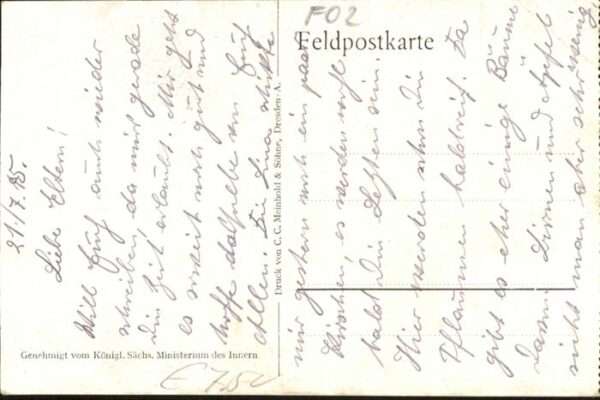 F02
Feldpostkarte
21./7.15.
Liebe Eltern!
Will Euch auch wieder
schreiben, da mir gerade
die Zeit erlaubt. Mir geht
es soweit noch gut und
hoffe dasselbe von Euch
Allen. Die Ina schickte
mir gestern noch ein paar
Kirschen, es werden wohl
bald die Letzten sein.
Hier werden schon die
Pflaumen bald reif. Da
gibt es hier einige Bäume
davon. Birnen und Äpfel
sieht man aber sehr wenig
Druck von C. C. Meinhold & Söhne, Dresden-A.
Genehmigt vom Königl. Sächs. Ministerium des Innern
£ 7.50